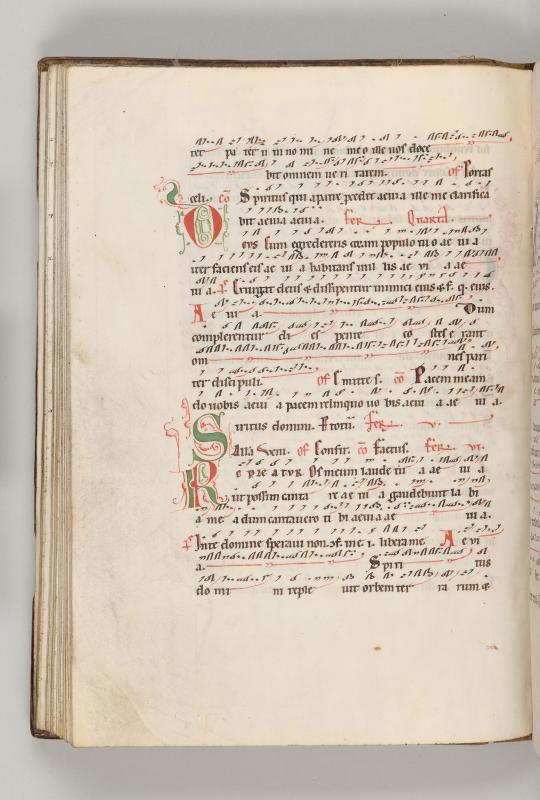 ret pa ter ii in no mi ne me o ille uos doce
bit omnem ue ri tatem. Of Portas
celi. Co Spiritus qui a patre procedit aeuia ille me clarifica
bit aeuia aeuia. Fer Quarta
Deus dum egredereris coram populo tuo ae ui a
iter faciens eis ae ui a habitans in il lis ae ui a ae
ui a. Ps Exurgat deus & dissipentur inimici eius & f. q. eius.
A e ui a. Dum
complerentur di es pente co stes e rant
om nes pari
ter discipuli. Of Emitte s. Co Pacem meam
do uobis aeuia pacem relinquo uo bis aeuia a ae ui a.
Spiritus domini. Fer v.
Alla Veni. Of Confir. Co Factus. Fer vi.
Repleatur Os meum laude tu a ae ui a
ut possim canta re ae ui a gaudebunt la bi
a me a dum cantauero ti bi aeuia ae ui a.
Ps In te domine speraui non. libera me A e ui
a. Spiri tus
do mi ni reple uit orbem ter ra rum &